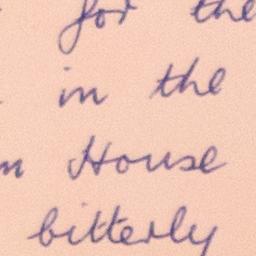 for the
in the
House
bitterly